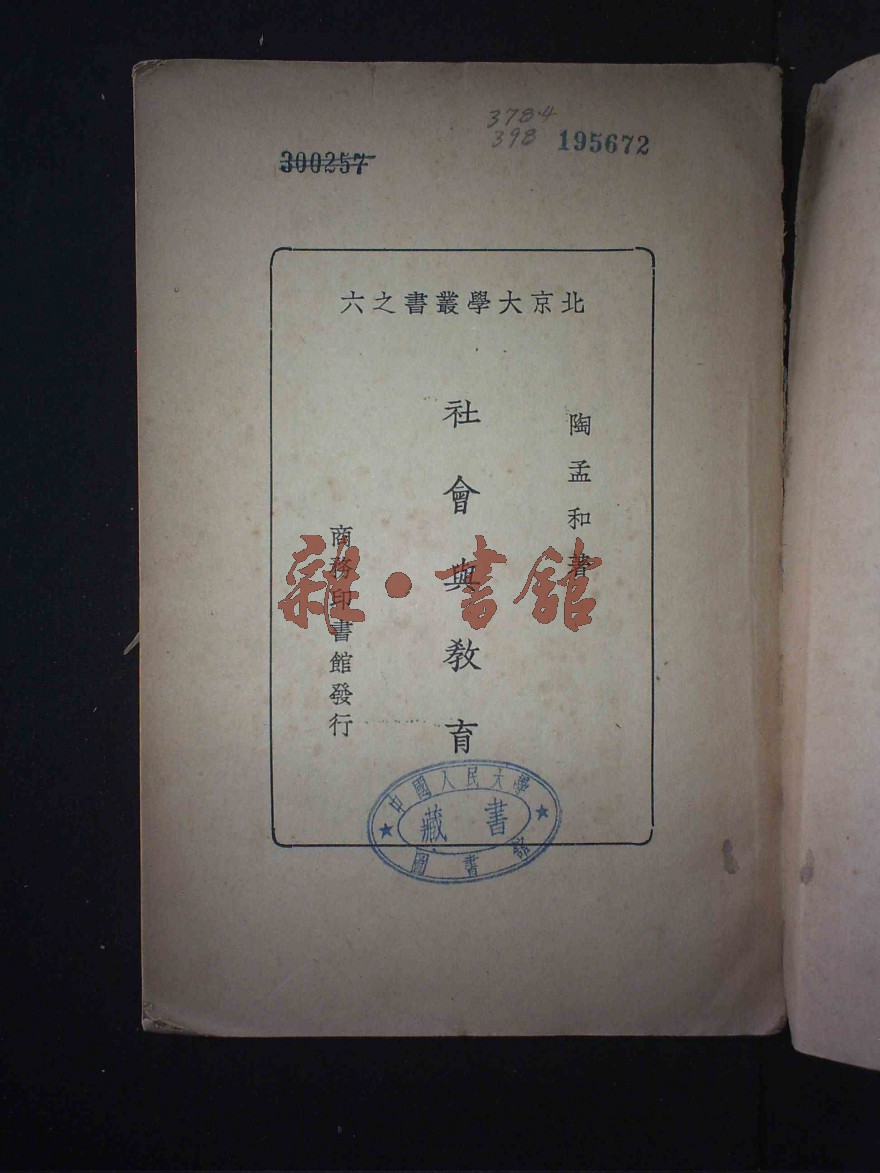 3784
398
195672
300257
北京大學叢書之六
陶孟和著
社會與教育
商務印書館發行
雜·書館
中國人民大學
藏書
圖書館